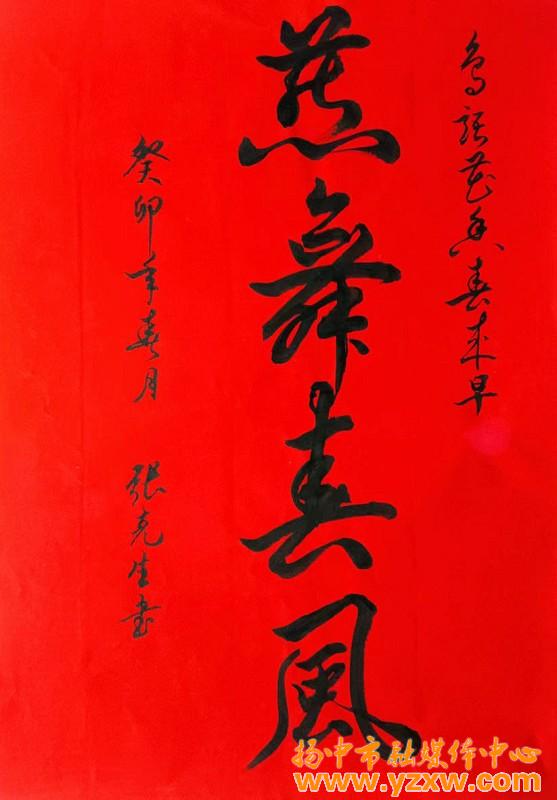 鸟语花香春来早
燕舞春风
癸卯年春月 张克生书
扬中市融媒体中心
www.yzxw.com